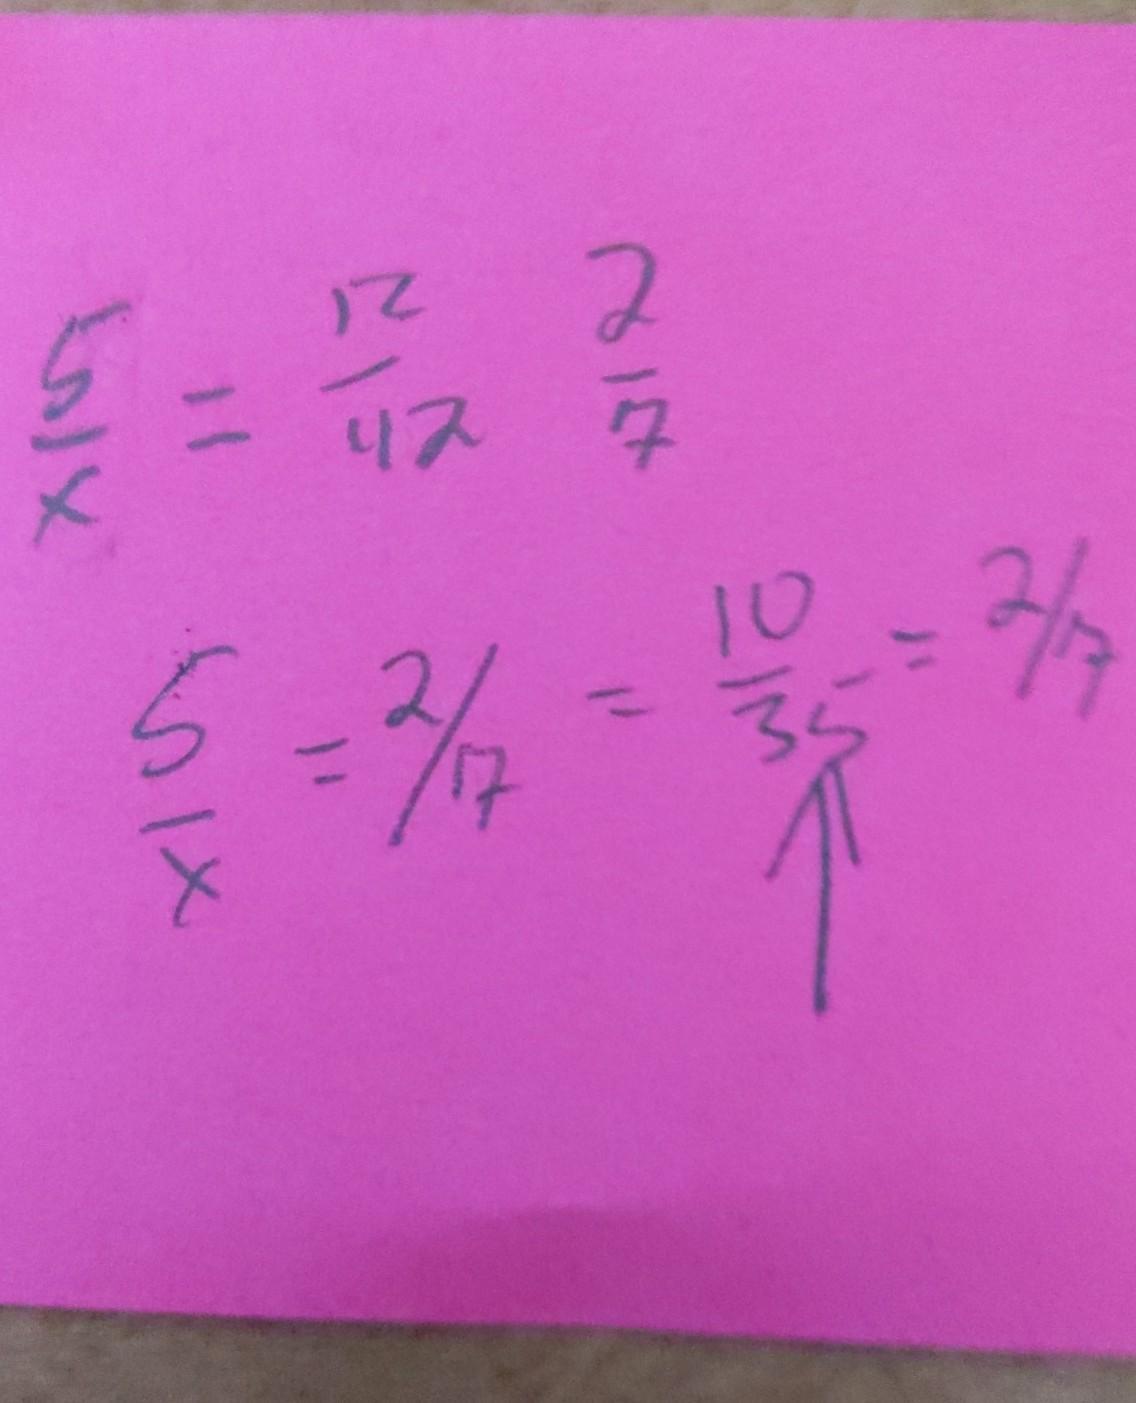 5/x = 12/42 2/7
5/x = 2/7 = 10/35 = 2/7